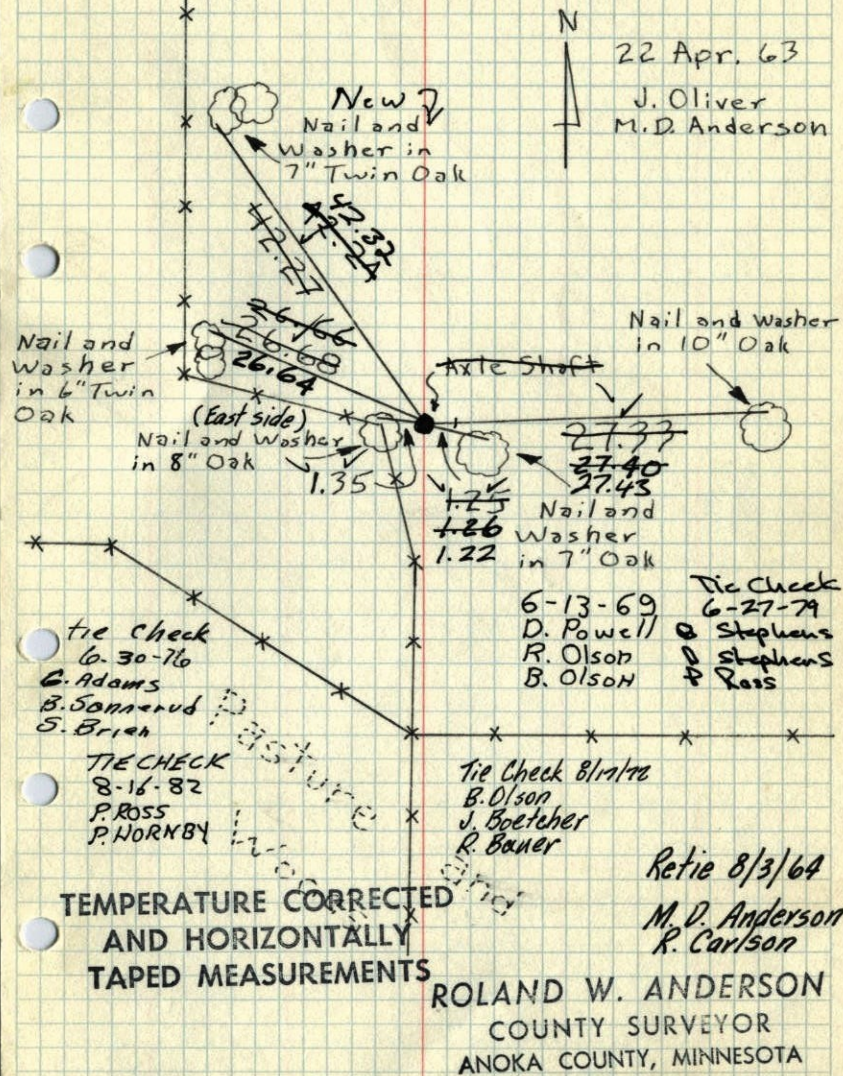 N
22 Apr. 63
J. Oliver
M.D. Anderson
New
Nail and
Washer in
7" Twin Oak
42.32
42.24
42.27
26.66
26.68
26.64
Nail and
Washer
in 6" Twin
Oak
Nail and Washer
in 10" Oak
Axle Shaft
(East side)
Nail and Washer
in 8" Oak
1.35
27.33
27.40
27.43
1.25
1.26
1.22
Nail and
Washer
in 7" Oak
6-13-69
D. Powell
R. Olson
B. Olson
Tie Check
6-27-79
Stephens
Stephens
P Ross
tie Check
6-30-76
G. Adams
B. Sonnerud
S. Brien
TIE CHECK
8-16-82
P. ROSS
P. HORNBY
Pasture
and
Woods
Tie Check 8/17/72
B. Olson
J. Boetcher
R. Bauer
Retie 8/3/64
M. D. Anderson
R. Carlson
TEMPERATURE CORRECTED
AND HORIZONTALLY
TAPED MEASUREMENTS
ROLAND W. ANDERSON
COUNTY SURVEYOR
ANOKA COUNTY, MINNESOTA